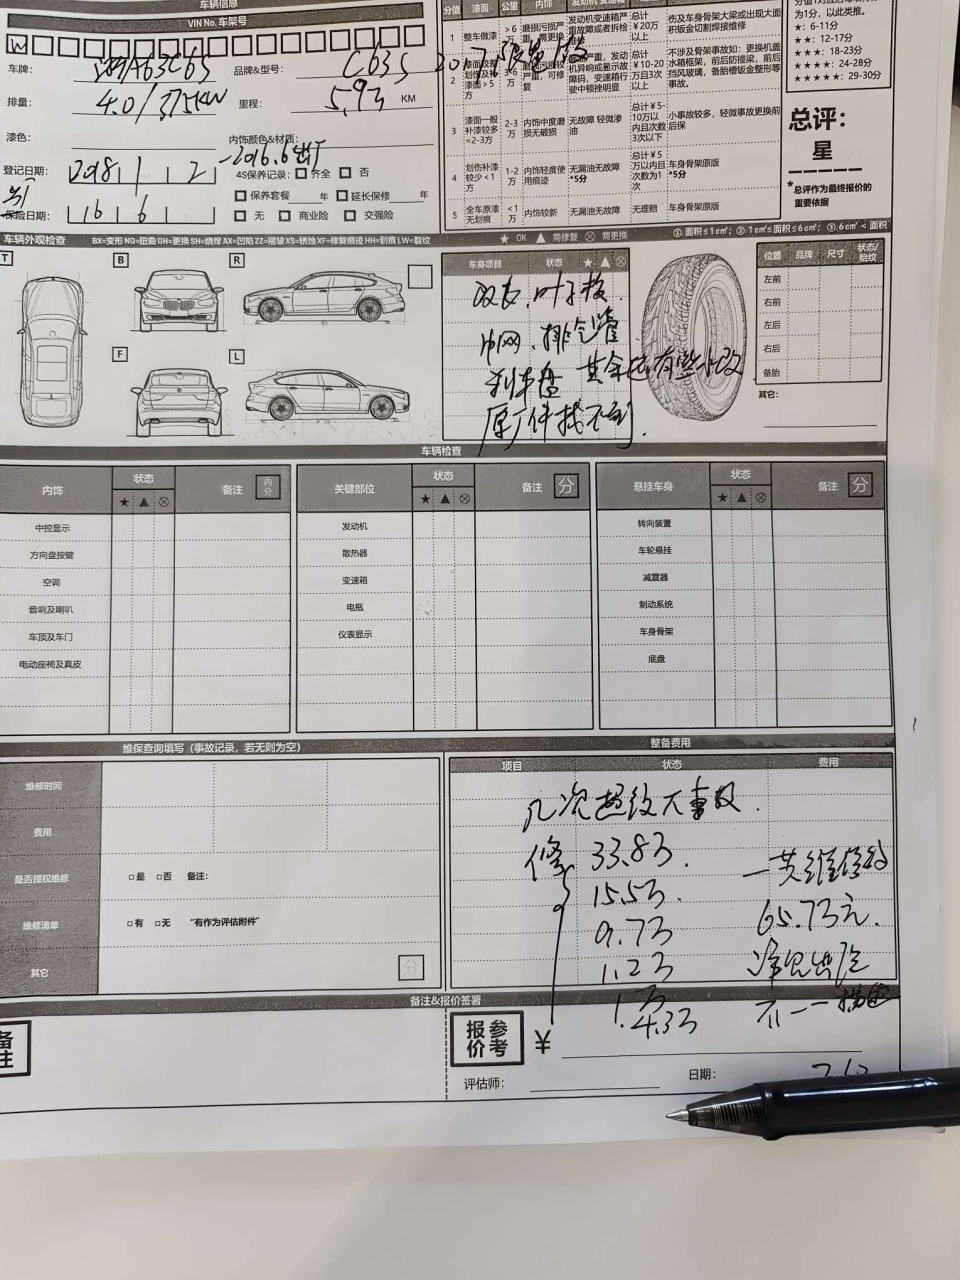 车辆信息
VIN No. 车架号
W
车牌：
品牌&型号： C63S 2017
排量： 4.0/375KW
里程： 5.93 KM
漆色：
内饰颜色&材质：
登记日期： 2018 1 2
2016.6出厂
4S保养记录： 齐全 否
保养套餐 年 延长保修 年
出厂
保险日期： 16 6
无 商业险 交强险
分值 漆面 公里 内饰
1 整车做漆 >6万 磨损污损严重，需更换 发动机变速箱严重故障或者拆检维修 总计￥20万以上 伤及车身骨架大梁或出现大面积钣金切割焊接维修
2 总计￥10-20万且3次以上 不涉及骨架事故如：更换机盖水箱框架，前后防撞梁，前后挡风玻璃，备胎槽钣金整形等事故。
3 漆面一般补漆较多=2-3方 2-3万 内饰中度磨损无破损 无故障 轻微渗油 总计￥5-10万以内且次数3次以下 小事故较多，轻微事故更换前后保
4 划伤补漆较少<1方 1-2万 内饰轻度使用痕迹 无漏油无故障 *5分 总计￥5万以内且次数为1次 车身骨架原版 *5分
5 全车原漆无划痕 <1万 内饰较新 无漏油无故障 无理赔 车身骨架原版
为1分，以此类推。
★：6-11分
★★：12-17分
★★★：18-23分
★★★★：24-28分
★★★★★：29-30分
总评：
星
*总评作为最终报价的重要依据
车辆外观检查 BX=变形 NQ=扭曲 GH=更换 SH=烧焊 AX=凹陷 ZZ=褶皱 XS=锈蚀 XF=修复痕迹 HH=划痕 LW=裂纹
★ OK ▲ 需修复 ⊗ 需更换 ①.面积≤1c㎡；②.1c㎡≤面积≤6c㎡；③.6c㎡<面积
T B R F L
车身项目 状态 ★ ▲ ⊗
叶子板
中网、排气管
刹车盘 其余也有些小改
原厂件找不到.
位置 品牌 尺寸 状态/胎纹
左前
右前
左后
右后
备胎
其它：
车辆检查
内饰 状态 ★ ▲ ⊗ 备注 内分
中控显示
方向盘按键
空调
音响及喇叭
车顶及车门
电动座椅及真皮
关键部位 状态 ★ ▲ ⊗ 备注 分
发动机
散热器
变速箱
电瓶
仪表显示
悬挂车身 状态 ★ ▲ ⊗ 备注 分
转向装置
车轮悬挂
减震器
制动系统
车身骨架
底盘
维保查询填写（事故记录，若无则为空）
维修时间
费用
是否授权维修 □是 □否 备注：
维修清单 □有 □无 “有作为评估附件”
其它 分
整备费用
项目 状态 费用
几次超级大事故.
修 33.8万.
15.5万
9.7万
1.2万
1.万
4.3万
一共维修约
65.7万元.
详见出险
不一一描述
备注&报价签署
备注
参考报价 ￥
评估师： 日期：